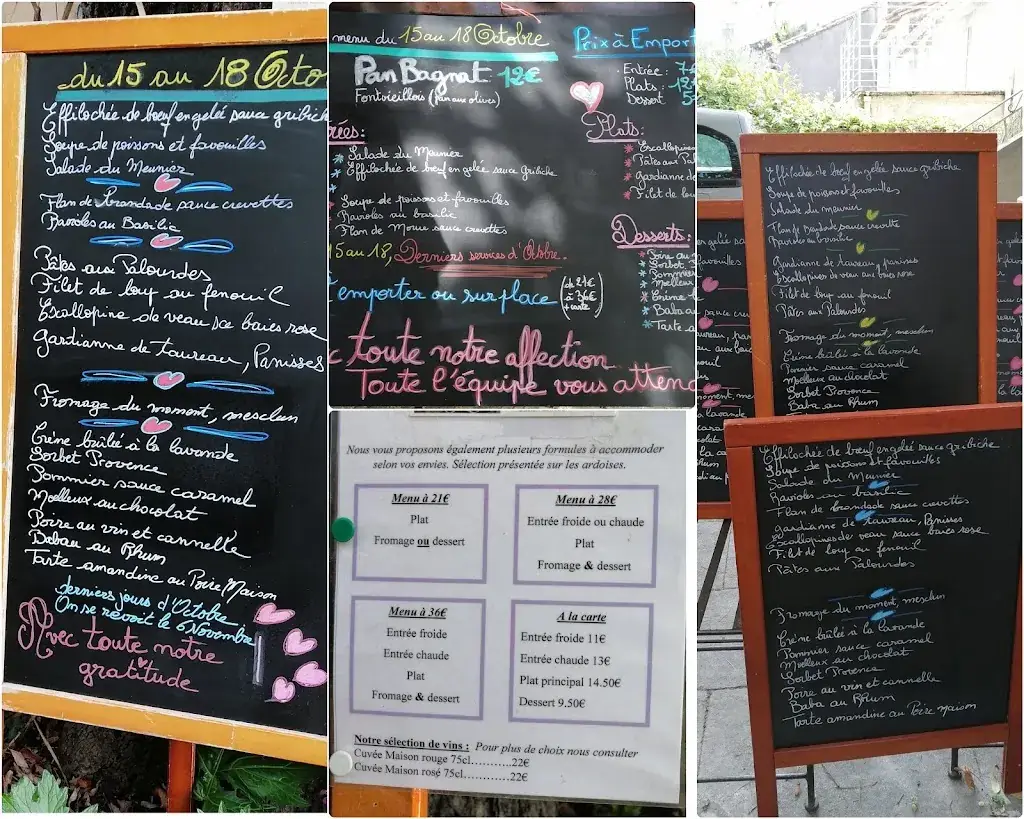 du 15 au 18 Octo
Effilochée de bœuf en gelée sauce gribich
Soupe de poissons et favouilles
Salade du Meunier
Flan de brandade sauce crevettes
Ravioles au Basilic
Pâtes aux Palourdes
Filet de loup au fenouil
Escallopine de veau sce baies rose
Gardianne de taureau, Panisses
Fromage du moment, mesclun
Crème brûlée à la lavande
Sorbet Provence
Pommier sauce caramel
Moelleux au chocolat
Poire au vin et cannelle
Baba au Rhum
Tarte amandine au Poire Maison
derniers jours d'Octobre
On se revoit le 6 Novembre
Avec toute notre
gratitude
menu du 15 au 18 Octobre
Pan Bagnat 12€
Fontvieillois (pain aux olives)
Prix à Empor
Entrée:
Plats:
Dessert
rées:
Salade du Meunier
Effilochée de bœuf en gelée sauce Gribiche
Soupe de poissons et favouilles
Ravioles au basilic
Flan de Morue sauce crevettes
Plats:
Escallopine
Pâtes aux Pal
Gardianne d
Filet de lou
15 au 18, Derniers services d'Octobre.
emporter ou sur place
(de 21€
à 36€
+ carte)
Desserts:
Poire au
Sorbet
Pommier
Moelleux
Crème
Baba au
Tarte a
c toute notre affection
Toute l'équipe vous atten
Nous vous proposons également plusieurs formules à accommoder
selon vos envies. Sélection présentée sur les ardoises.
Menu à 21€
Plat
Fromage ou dessert
Menu à 28€
Entrée froide ou chaude
Plat
Fromage & dessert
Menu à 36€
Entrée froide
Entrée chaude
Plat
Fromage & dessert
A la carte
Entrée froide 11€
Entrée chaude 13€
Plat principal 14.50€
Dessert 9.50€
Notre sélection de vins : Pour plus de choix nous consulter
Cuvée Maison rouge 75cl...........22€
Cuvée Maison rosé 75cl............22€
Effilochée de bœuf en gelée sauce gribiche
Soupe de poissons et favouilles
Salade du meunier
Flan de brandade sauce crevette
Ravioles au basilic
Gardianne de taureau, panisses
Escallopines de veau aux baies rose
Filet de loup au fenouil
Pâtes aux Palourdes
Fromage du moment, mesclun
Crème brûlée à la lavande
Pommier sauce caramel
Moelleux au chocolat
Sorbet Provence
Baba au Rhum
Effilochée de bœuf en gelée sauce gribiche
Soupe de poissons et favouilles
Salade du Meunier
Ravioles au basilic
Flan de brandade sauce crevettes
gardianne de taureau, Panisses
Escallopines de veau sauce baies rose
Filet de loup au fenouil
Pâtes aux Palourdes
Fromage du moment, mesclun
Crème brûlée à la lavande
Pommier sauce caramel
Moelleux au chocolat
Sorbet Provence
Poire au vin et cannelle
Baba au Rhum
Tarte amandine au Poire Maison